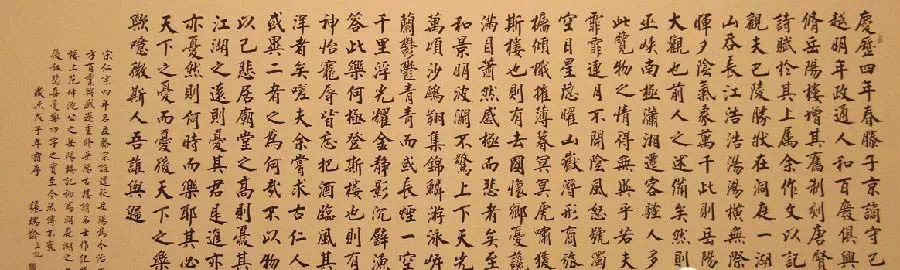 慶歷四年春滕子京謫守巴
越明年政通人和百廢俱興
脩岳陽樓增其舊制刻唐賢
詩賦於其上属余作文以記
觀夫巴陵勝狀在洞庭一湖
山吞長江浩浩湯湯橫無際
暉夕陰氣象萬千此則岳陽
大觀也前人之述備矣然則
巫峽南極瀟湘遷客騷人多
此覽物之情得無異乎若夫
霏霏連月不開陰風怒號濁
空日星隱曜山嶽潛形商旅
檣傾檝摧薄暮冥冥虎嘯猿
斯樓也則有去國懷鄉憂讒
滿目蕭然感極而悲者矣至
和景明波瀾不驚上下天光
萬頃沙鷗翔集錦鱗游泳岸
蘭鬱鬱青青而或長煙一空
千里浮光耀金靜影沉璧漁
答此樂何極登斯樓也則有
神怡寵辱皆忘把酒臨風其
洋者矣嗟夫余嘗求古仁人
或異二者之為何哉不以物
以己悲居廟堂之高則憂其
江湖之遠則憂其君是進亦
亦憂然則何時而樂耶其必
天下之憂而憂後天下之樂
歟噫微斯人吾誰與歸
宋仁宗四年